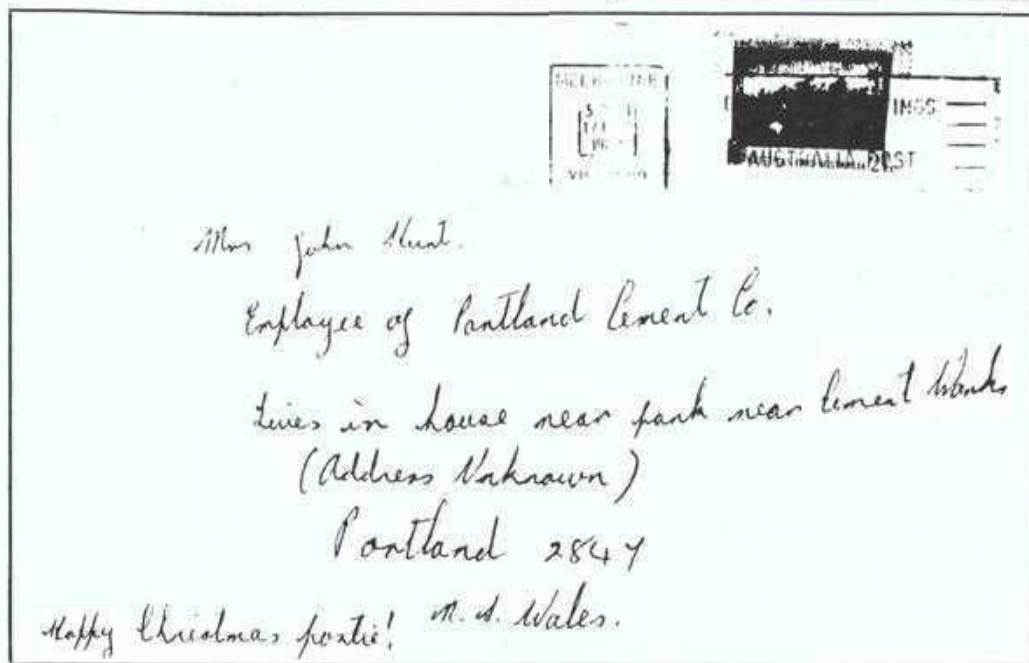 MELBOURNE
INGS
AUSTRALIA POST
Mrs John Hunt.
Employee of Portland Cement Co.
Lives in house near park near Cement Works
(Address Unknown)
Portland 2847
N.S. Wales.
Happy Christmas postie!